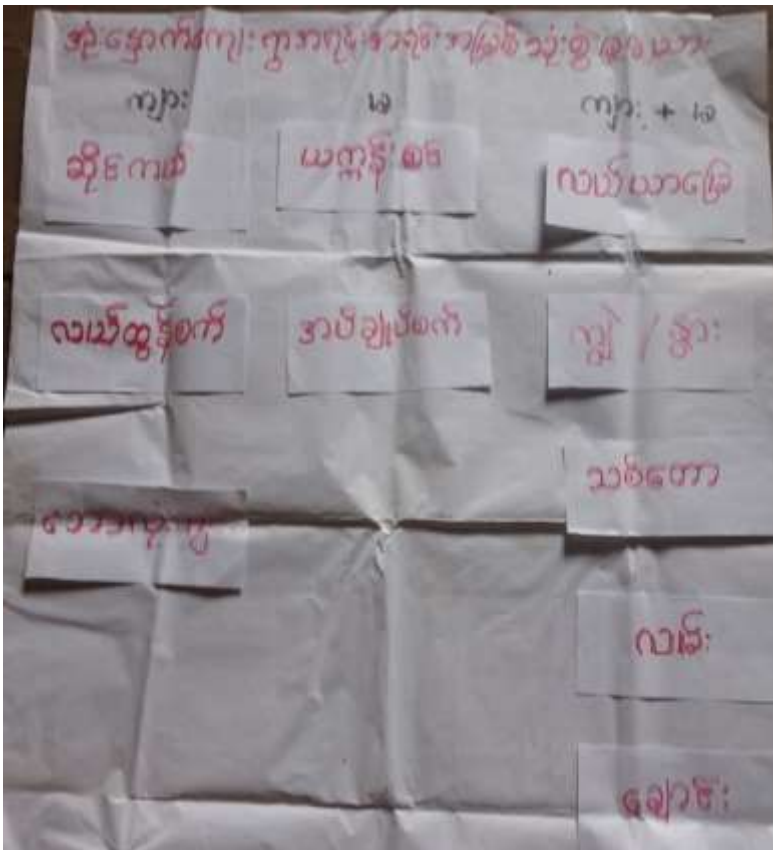 အုံးနှောက်ကျေးရွာအရင်းအမြစ်သုံးစွဲမှု
ကျား မ ကျား + မ
ဆိုင်ကယ် ယက္ကန်းစင် လယ်ယာမြေ
လယ်ထွန်စက် အပ်ချုပ်စက် ကျွဲ / နွား
သစ်တော
လမ်း
ချောင်း